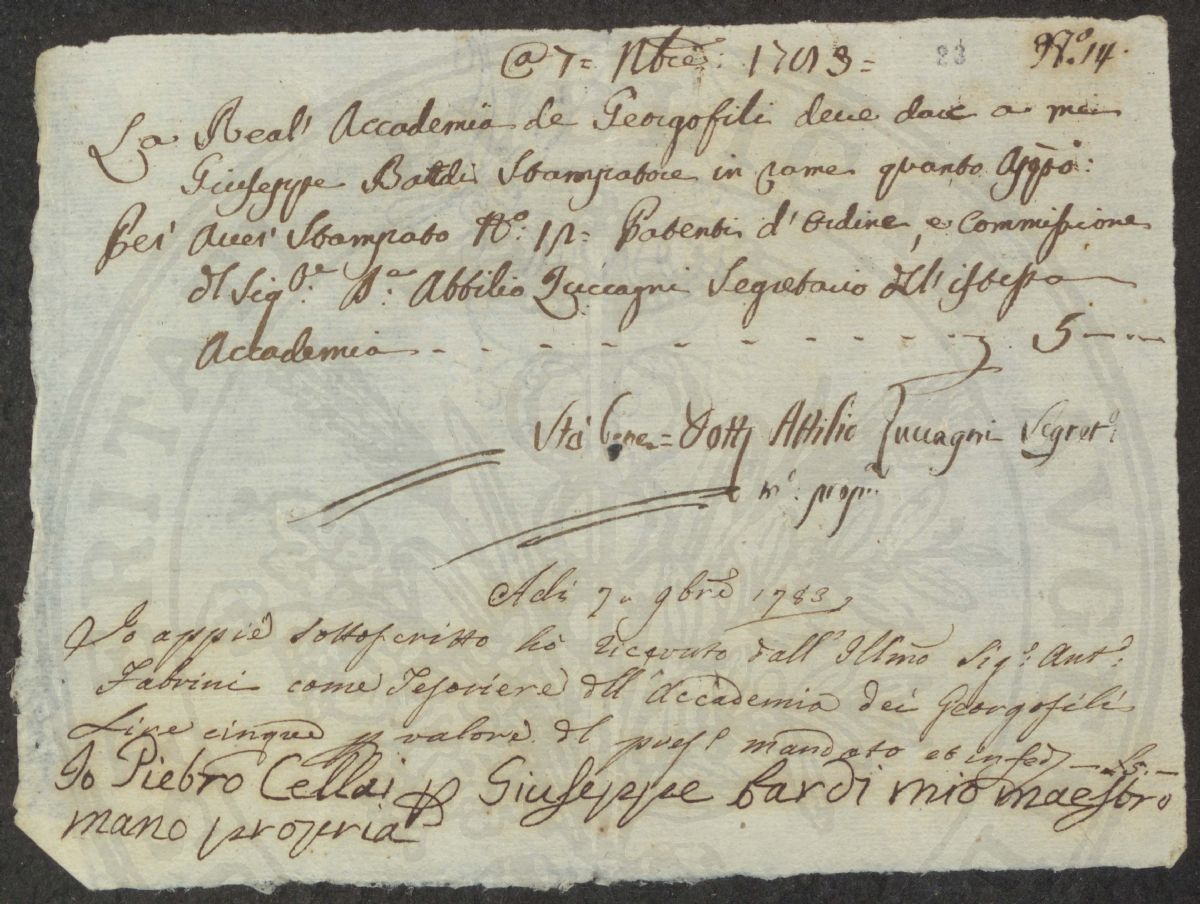 @ 7= Nbre: 1783= 23 No. 14.
La Real' Accademia de Georgofili deve dare a me
Giuseppe Bardi Stampatore in rame quanto appo:
Per' aver' Stampato No: 12= Patenti d' Ordine, e Commissione
dl Sigre: Dr. Attilio Zuccagni Segretario dell' istessa
Accademia - - - - - - - - - - 5 — —
Sta bene = Dott Attilio Zuccagni Segreto:
mo. propa
Adi 7 9bre 1783
Io appiè sottoscritto hò ricevuto dall' Illmo Sigr. Anto.
Fabrini come Tesoriere dell' Accademia dei Georgofili
Lire cinque p valore dl prese mandato et in fed — £5. —
Io Pietro Cellai p Giuseppe bardi mio maestro
mano propria